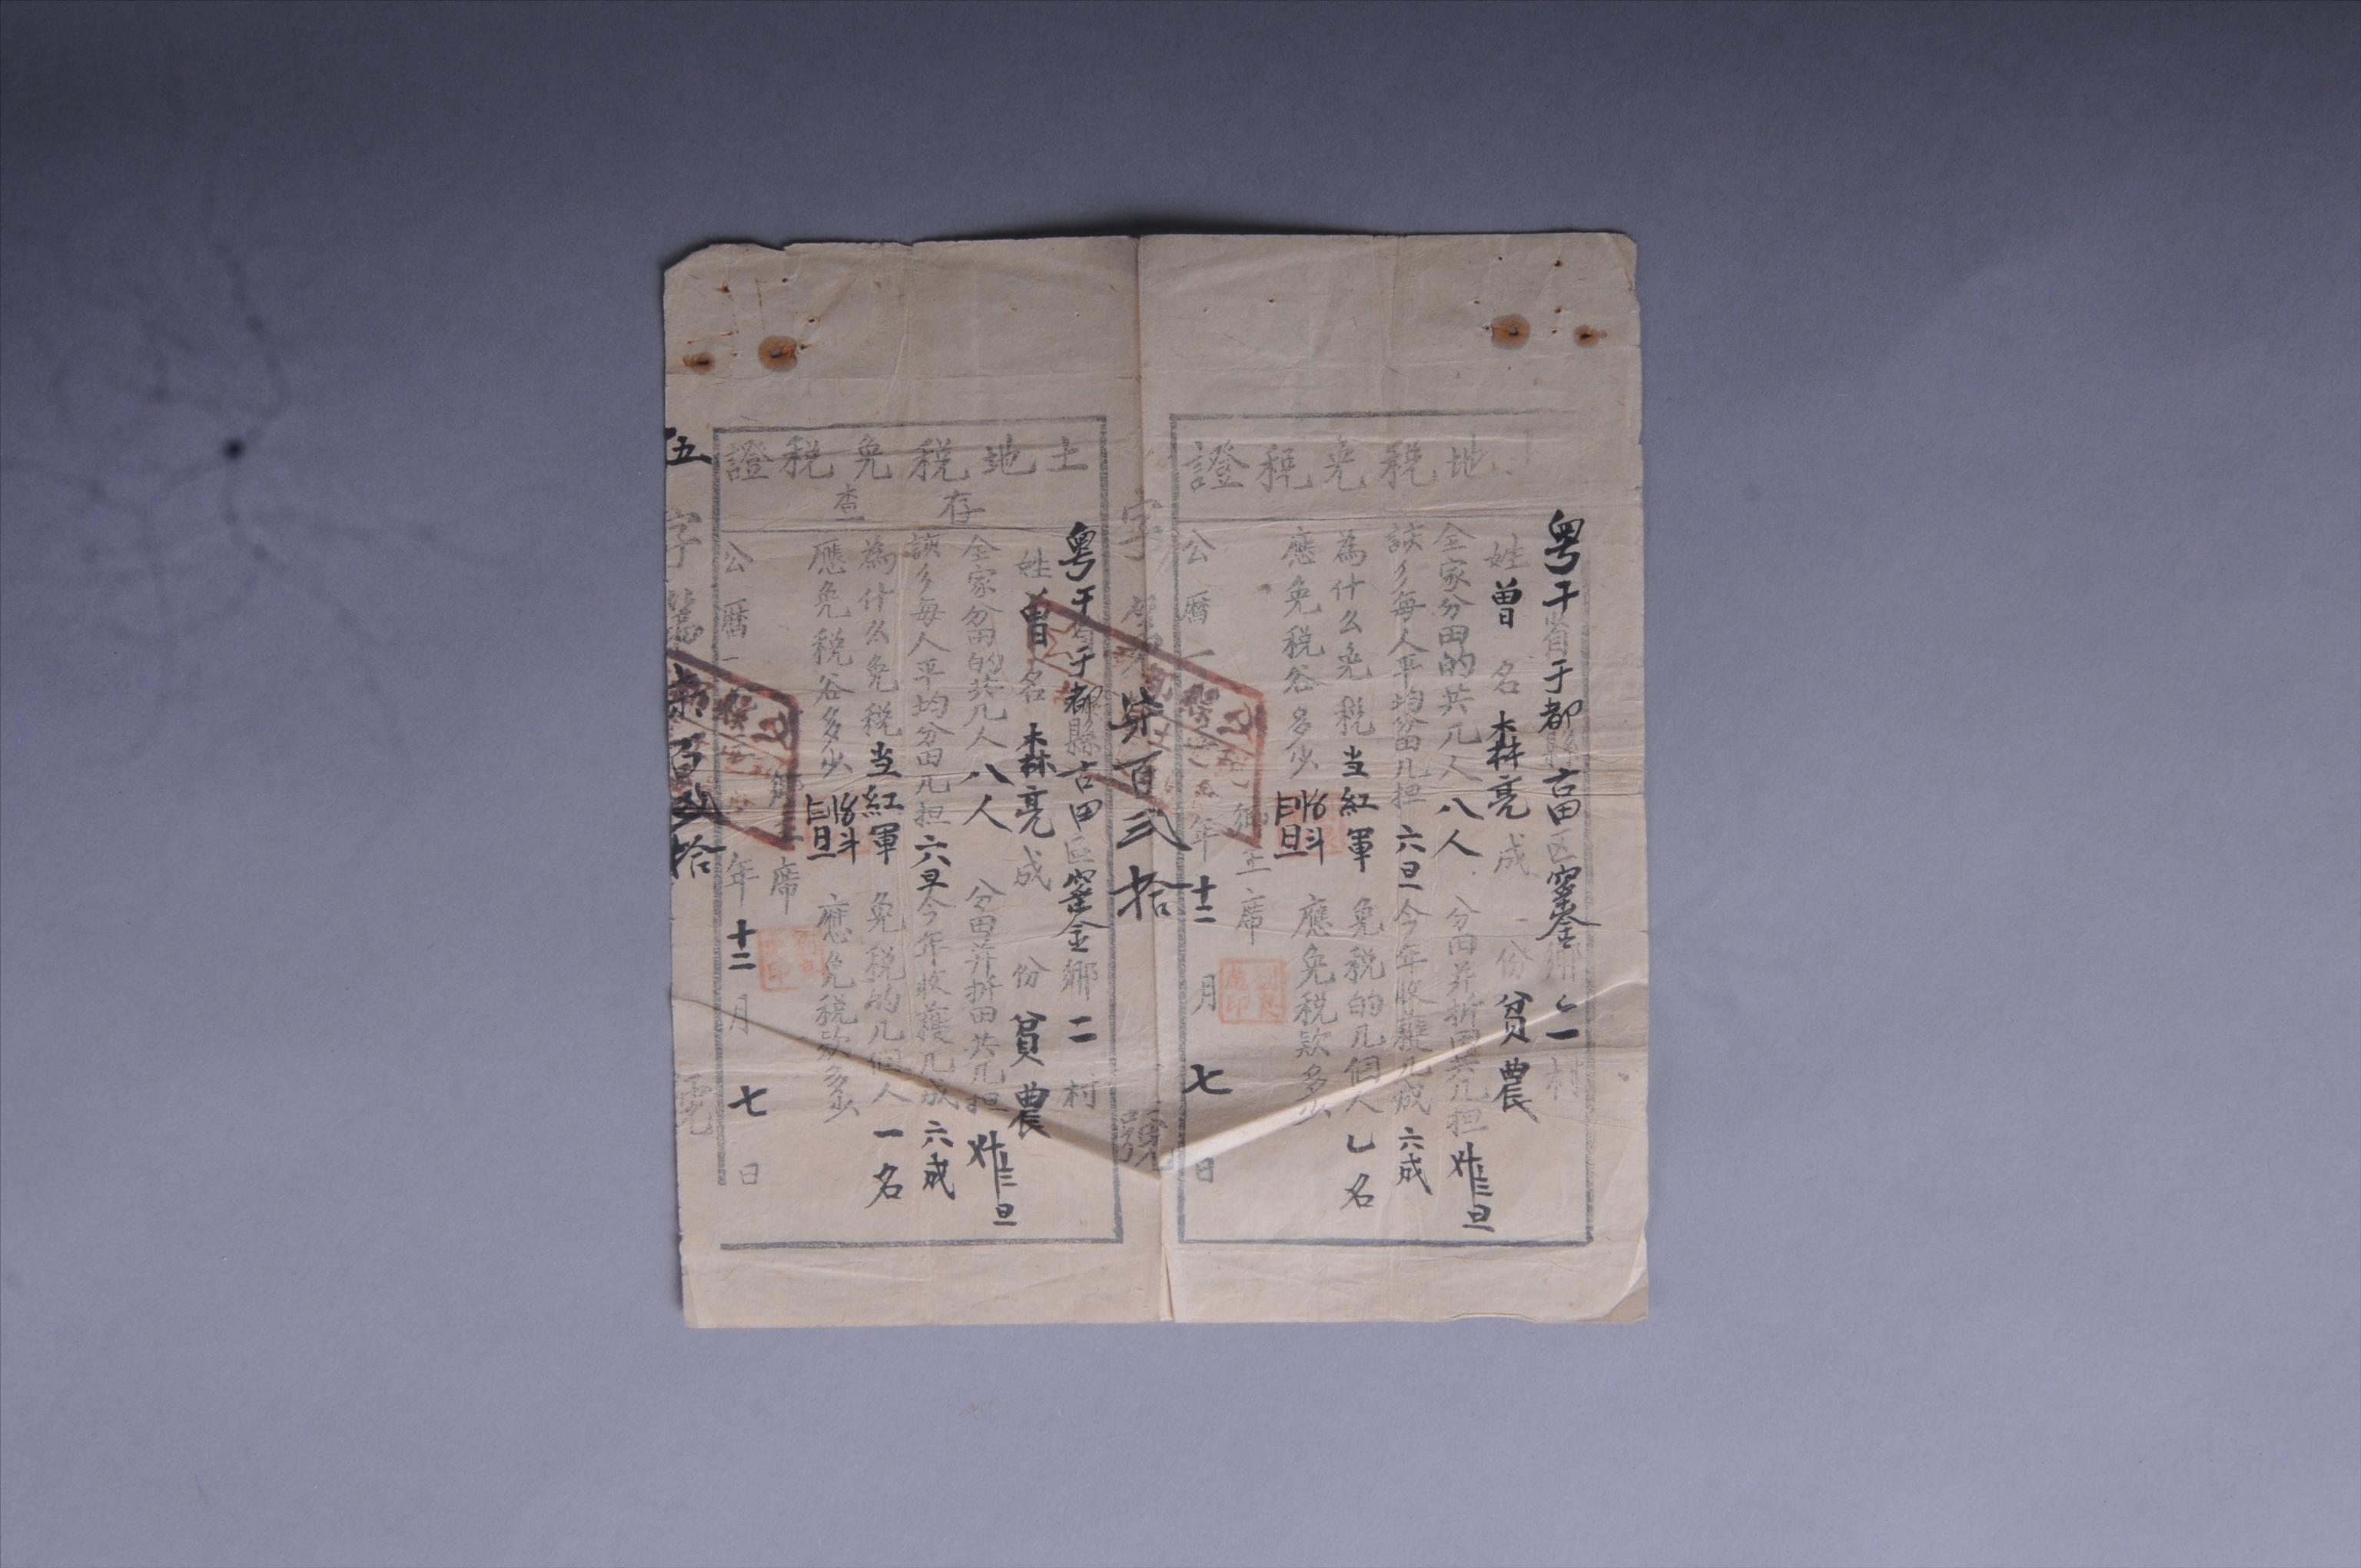 地税免税證
粤干省于都縣古田区窰金鄉二村
姓曾名森亮成份貧農
全家分田的共几人八人分田并折田共几担
該乡每人平均分田几担六旦今年收穫几成六成
為什么免税当紅軍免税的几個人乙名
應免税谷多少應免税款多少
鄉主席
公曆一年十二月七日
字第柒百弍拾號
土地税免税證
存查
粤干省于都縣古田区窰金鄉二村
姓曾名森亮成份貧農
全家分田的共几人八人分田并折田共几担
該乡每人平均分田几担六旦今年收穫几成六成
為什么免税当紅軍免税的几個人一名
應免税谷多少應免税款多少
鄉主席
公曆一年十二月七日
五字第柒百弍拾號